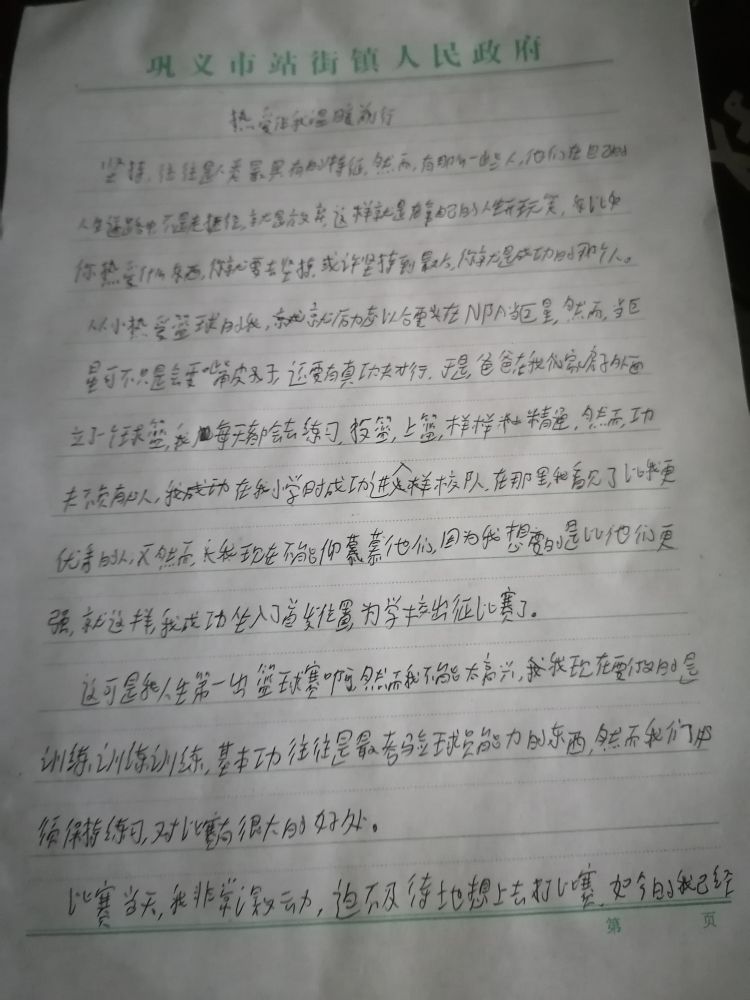 巩义市站街镇人民政府
热爱让我温暖前行
坚持,往往是人类最具有的特征,然而,有那么一些人,他们在自己的
人生道路中不是走捷径,就是放弃,这样就是在拿自己的人生开玩笑,
你热爱什么东西,你就要去坚持,或许坚持到最后,你就是成功的那个人。
从小热爱篮球的我,就励志以后要在NBA当巨星,然而,当巨
星可不只是会耍嘴皮子,还要有真功夫才行,于是,爸爸在我们家房子外面
立了一个球篮,我每天都会去练习,投篮,上篮,样样精通,然而,功
夫不负有心人,我成功在我小学时成功进入校队,在那里,我看见了比我更
优秀的人,然而,我现在不能仰慕他们,因为我想要的是比他们更
强,就这样,我成功坐入了首发位置,为学校出征比赛了。
这可是我人生第一出篮球赛啊,然而我不能太高兴,我现在要做的是
训练,训练,训练,基本功往往是最考验球员能力的东西,然而我们必
须保持练习,对比赛有很大的好处。
比赛当天,我非常激动,迫不及待地想上去打比赛,如今的我已经
第 页